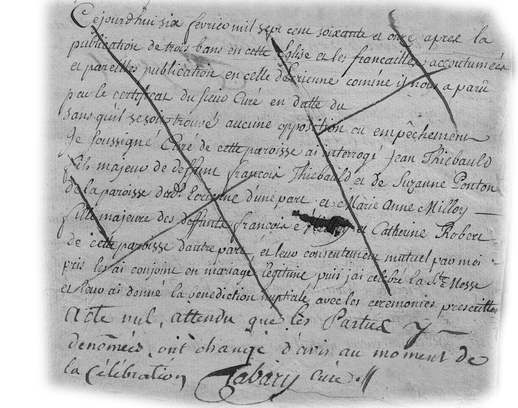 Cejourdhui six fevrier mil sept cent soixante et onze apres la
publication de trois bans en cette Eglise et les fiancailles accoutumées
et pareilles publication en celle d'ecrienne comme il nous a paru
par le certificat du sieur Curé en datte du
sans qu'il se soit trouvé aucune opposition ou empêchement
Je soussigné Curé de cette paroisse ai interrogé Jean Thiebauld
fils majeur de deffunt françois Thiebauld et de Suzanne Ponton
de la paroisse dud. Ecrienne d'une part et Marie Anne Milloy
fille majeure des deffunts francois et Catherine Robert
de cette paroisse d'autre part, et leur consentement mutuel par moi
pris les ai conjoint en mariage legitime puis j'ai celebré la Ste Messe
et leur ai donné la benediction nuptiale avec les ceremonies prescrittes
Acte nul, attendu que les Parties y
denomées, ont changé d'avis au moment de
la Célébration Tabary curé